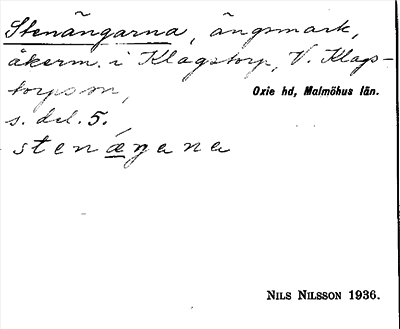 Stenängarna, ängsmark,
åkerm. i Klagstorp, V. Klags-
torps sn,
Oxie hd, Malmöhus län.
s. del. 5.
stenæŋana
NILS NILSSON 1936.